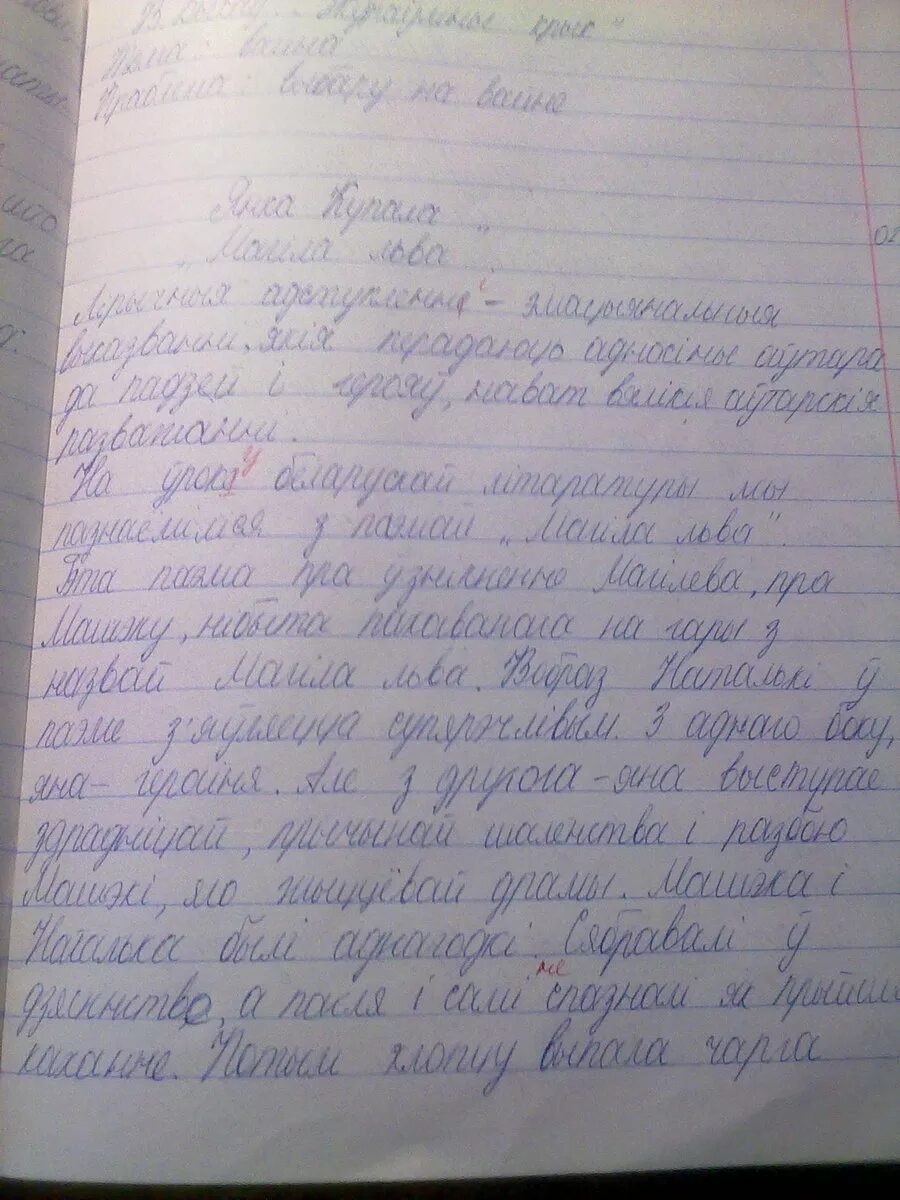 В. Быкаў. „Жураўліны крык“
Тэма: вайна
Праблема: выбару на вайне
Янка Купала
„Магіла льва“
Лірычныя адступленні – эмацыянальныя
выказванні, якія перадаюць адносіны аўтара
да падзей і герояў, нават вялікія аўтарскія
разважанні.
На уроку беларускай літаратуры мы
пазнаёміліся з паэмай „Магіла льва“.
Гэта паэма пра ўзнікненне Магілева, пра
Машэку, нібыта пахаванага на гары з
назвай Магіла льва. Вобраз Наталькі ў
паэме з'яўляецца супярэчлівым. З аднаго боку,
яна – гераіня. Але з другога – яна выступае
здрадніцай, прычынай шаленства і разбою
Машэкі, яго жыццёвай драмы. Машэка і
Наталька былі аднагодкі. Сябравалі ў
дзяцінстве, а пасля і самі не спазналі як прыйшл
каханне. Потым хлопцу выпала чарга